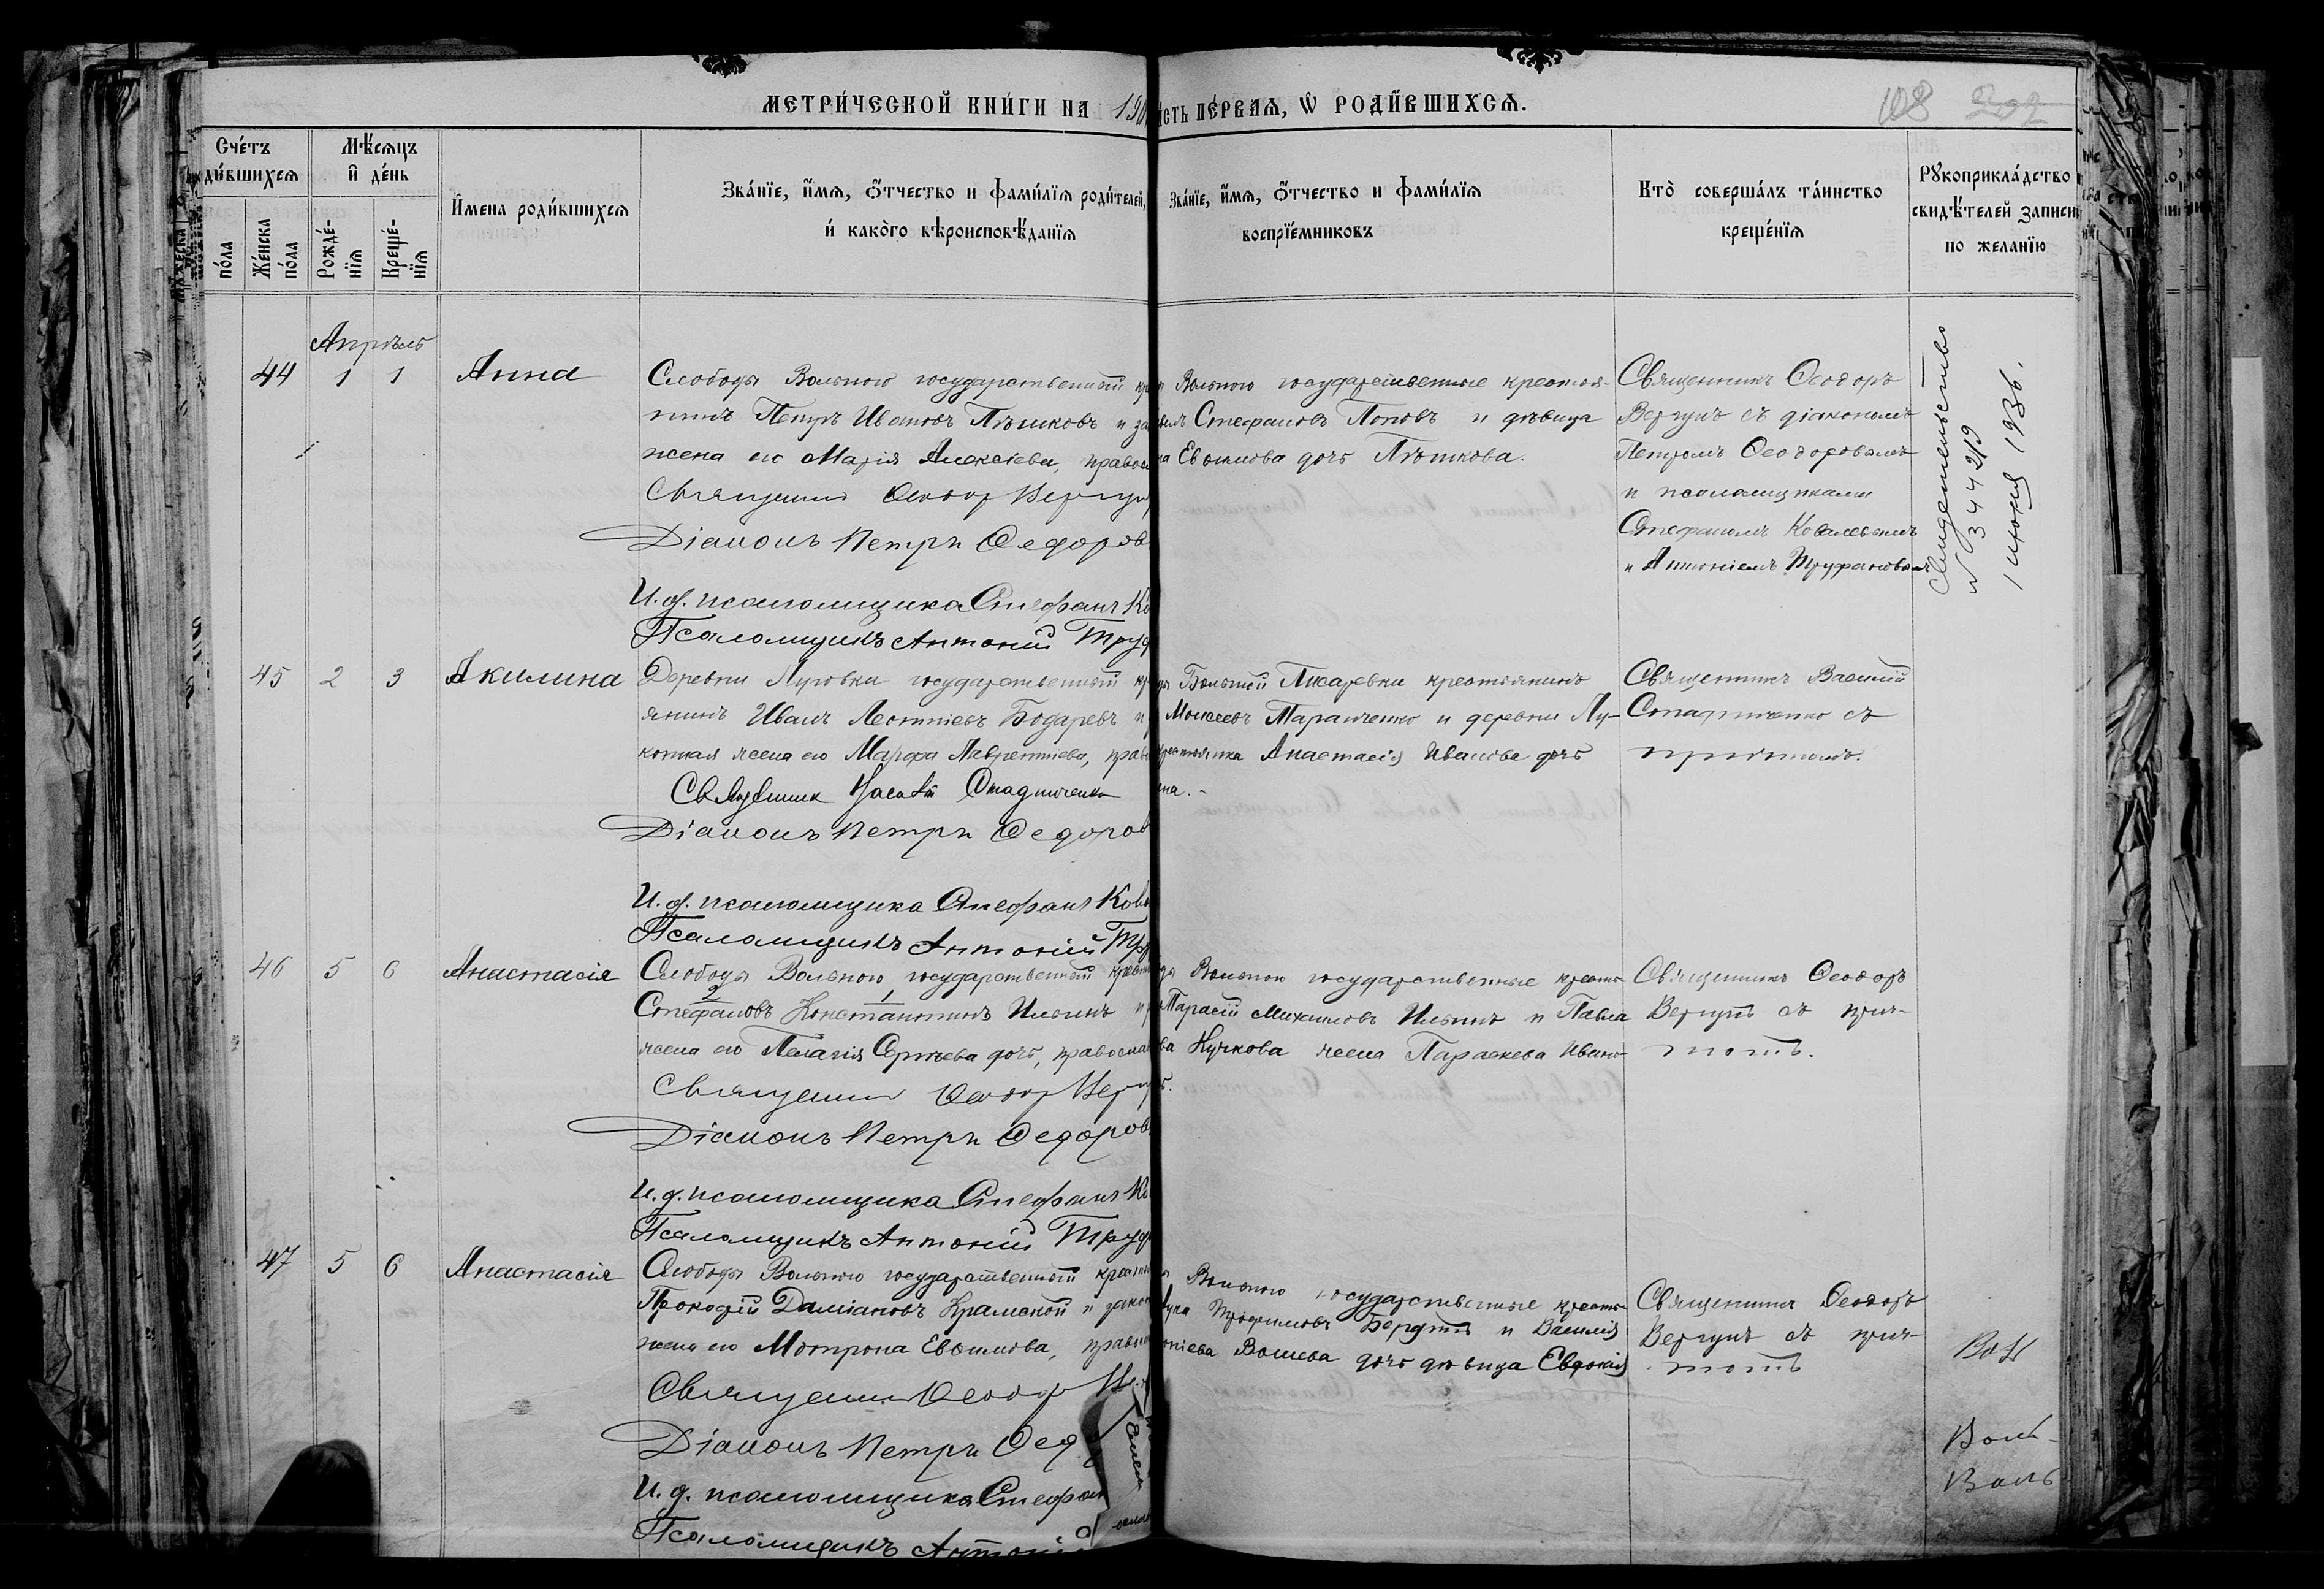 МЕТРИ́ЧЕСКОЙ КНИ́ГИ НА 190
ИСТЬ ПЕ́РВАѦ, Ѡ҆ РОДИ́ВШИХСѦ.
108 202
Сче́тъ
оди́вшихсѧ
Мѣ́сѧцъ
и҆ де́нь
И҆мена роди́вшихсѧ
Зва́нїе, и҆́мѧ, ѻ҆́тчество и фами́лїѧ роди́телей,
и҆ како́гѡ вѣроисповѣ́данїѧ
Зва́нїе, и҆́мѧ, ѻ҆́тчество и фами́лїѧ
воспрїе́мниковъ
Кто̀ соверша́лъ та́инство
креще́нїѧ
Рꙋкоприкла́дство
свидѣ́телей записи
по желанїю
по́ла
Же́нска
по́ла
Рожде́-
нїѧ
Креще́-
нїѧ
Апрѣль
44 1 1 Анна
Слободы Вольного государственный кр
нинъ Петръ Ивановъ Пѣшковъ и за
жена его Марія Алексіева, правосл
Священник Феодор Вергун
Діаконъ Петръ Федоров
И. д. псаломщика Стефанъ Ко
Псаломщикъ Антоній Труф
Вольного государственные крестья-
Стефановъ Поповъ и дѣвица
на Евѳимова дочь Пѣшкова.
Священникъ Ѳеодоръ
Вергунъ съ діакономъ
Петромъ Ѳеодоровымъ
и псаломщиками
Стефаномъ Ковалевымъ
и Антоніемъ Труфановымъ
Свидетельство
N 344219
1 июня 1936.
45 2 3 Акилина
Деревни Луговки государственный кр
янинъ Иванъ Леонтіевъ Бодаревъ и
конная жена его Марфа Лаврентіева, прав
Священник Василій Стадниченко
Діаконъ Петръ Федоров
И. д. псаломщика Стефанъ Кова
Псаломщикъ Антоній Тру
Большой Писаревки крестьянинъ
Моисеевъ Таранченко и деревни Лу-
крестьянка Анастасія Иванова дочь
на.
Священникъ Василій
Стадниченко съ
причтомъ.
46 5 6 Анастасія
Слободы Вольного государственный крестья
2 1
Стефановъ Константинъ Ильинъ и
жена его Пелагія Сергѣева дочь, правосла
Священник Феодор Вергу
Діаконъ Петръ Федоров
И. д. псаломщика Стефанъ Ко
Псаломщикъ Антоній Труф
Вольного государственные крестья-
Тарасій Михаиловъ Ильинъ и Павла
ва Кучкова жена Параскева Ивано-
Священникъ Ѳеодоръ
Вергунъ съ прич-
томъ.
47 5 6 Анастасія
Слободы Вольного государственный крестья
Прокофій Даміановъ Крамской и закон
жена его Мотрона Евѳимова, правосл
Священник Феодор Ве
Діаконъ Петръ Фед
И. д. псаломщика Стефан
Псаломщикъ Антоній
Вольного государственные крестья-
Лука Трофимовъ Бердинъ и Василія
дочь дѣвица Евдокія
Священникъ Ѳеодоръ
Вергунъ съ прич-
томъ
Вол
Воль